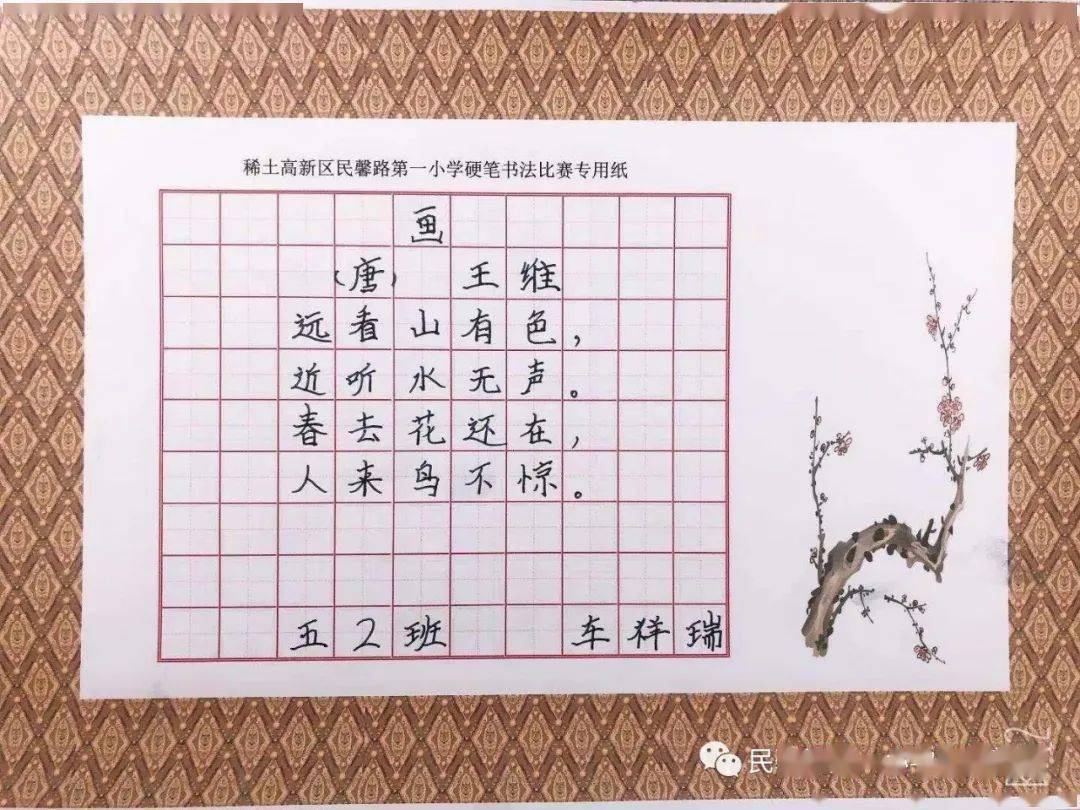 稀土高新区民馨路第一小学硬笔书法比赛专用纸
画
(唐) 王维
远看山有色,
近听水无声。
春去花还在,
人来鸟不惊。
五2班 车祥瑞
民